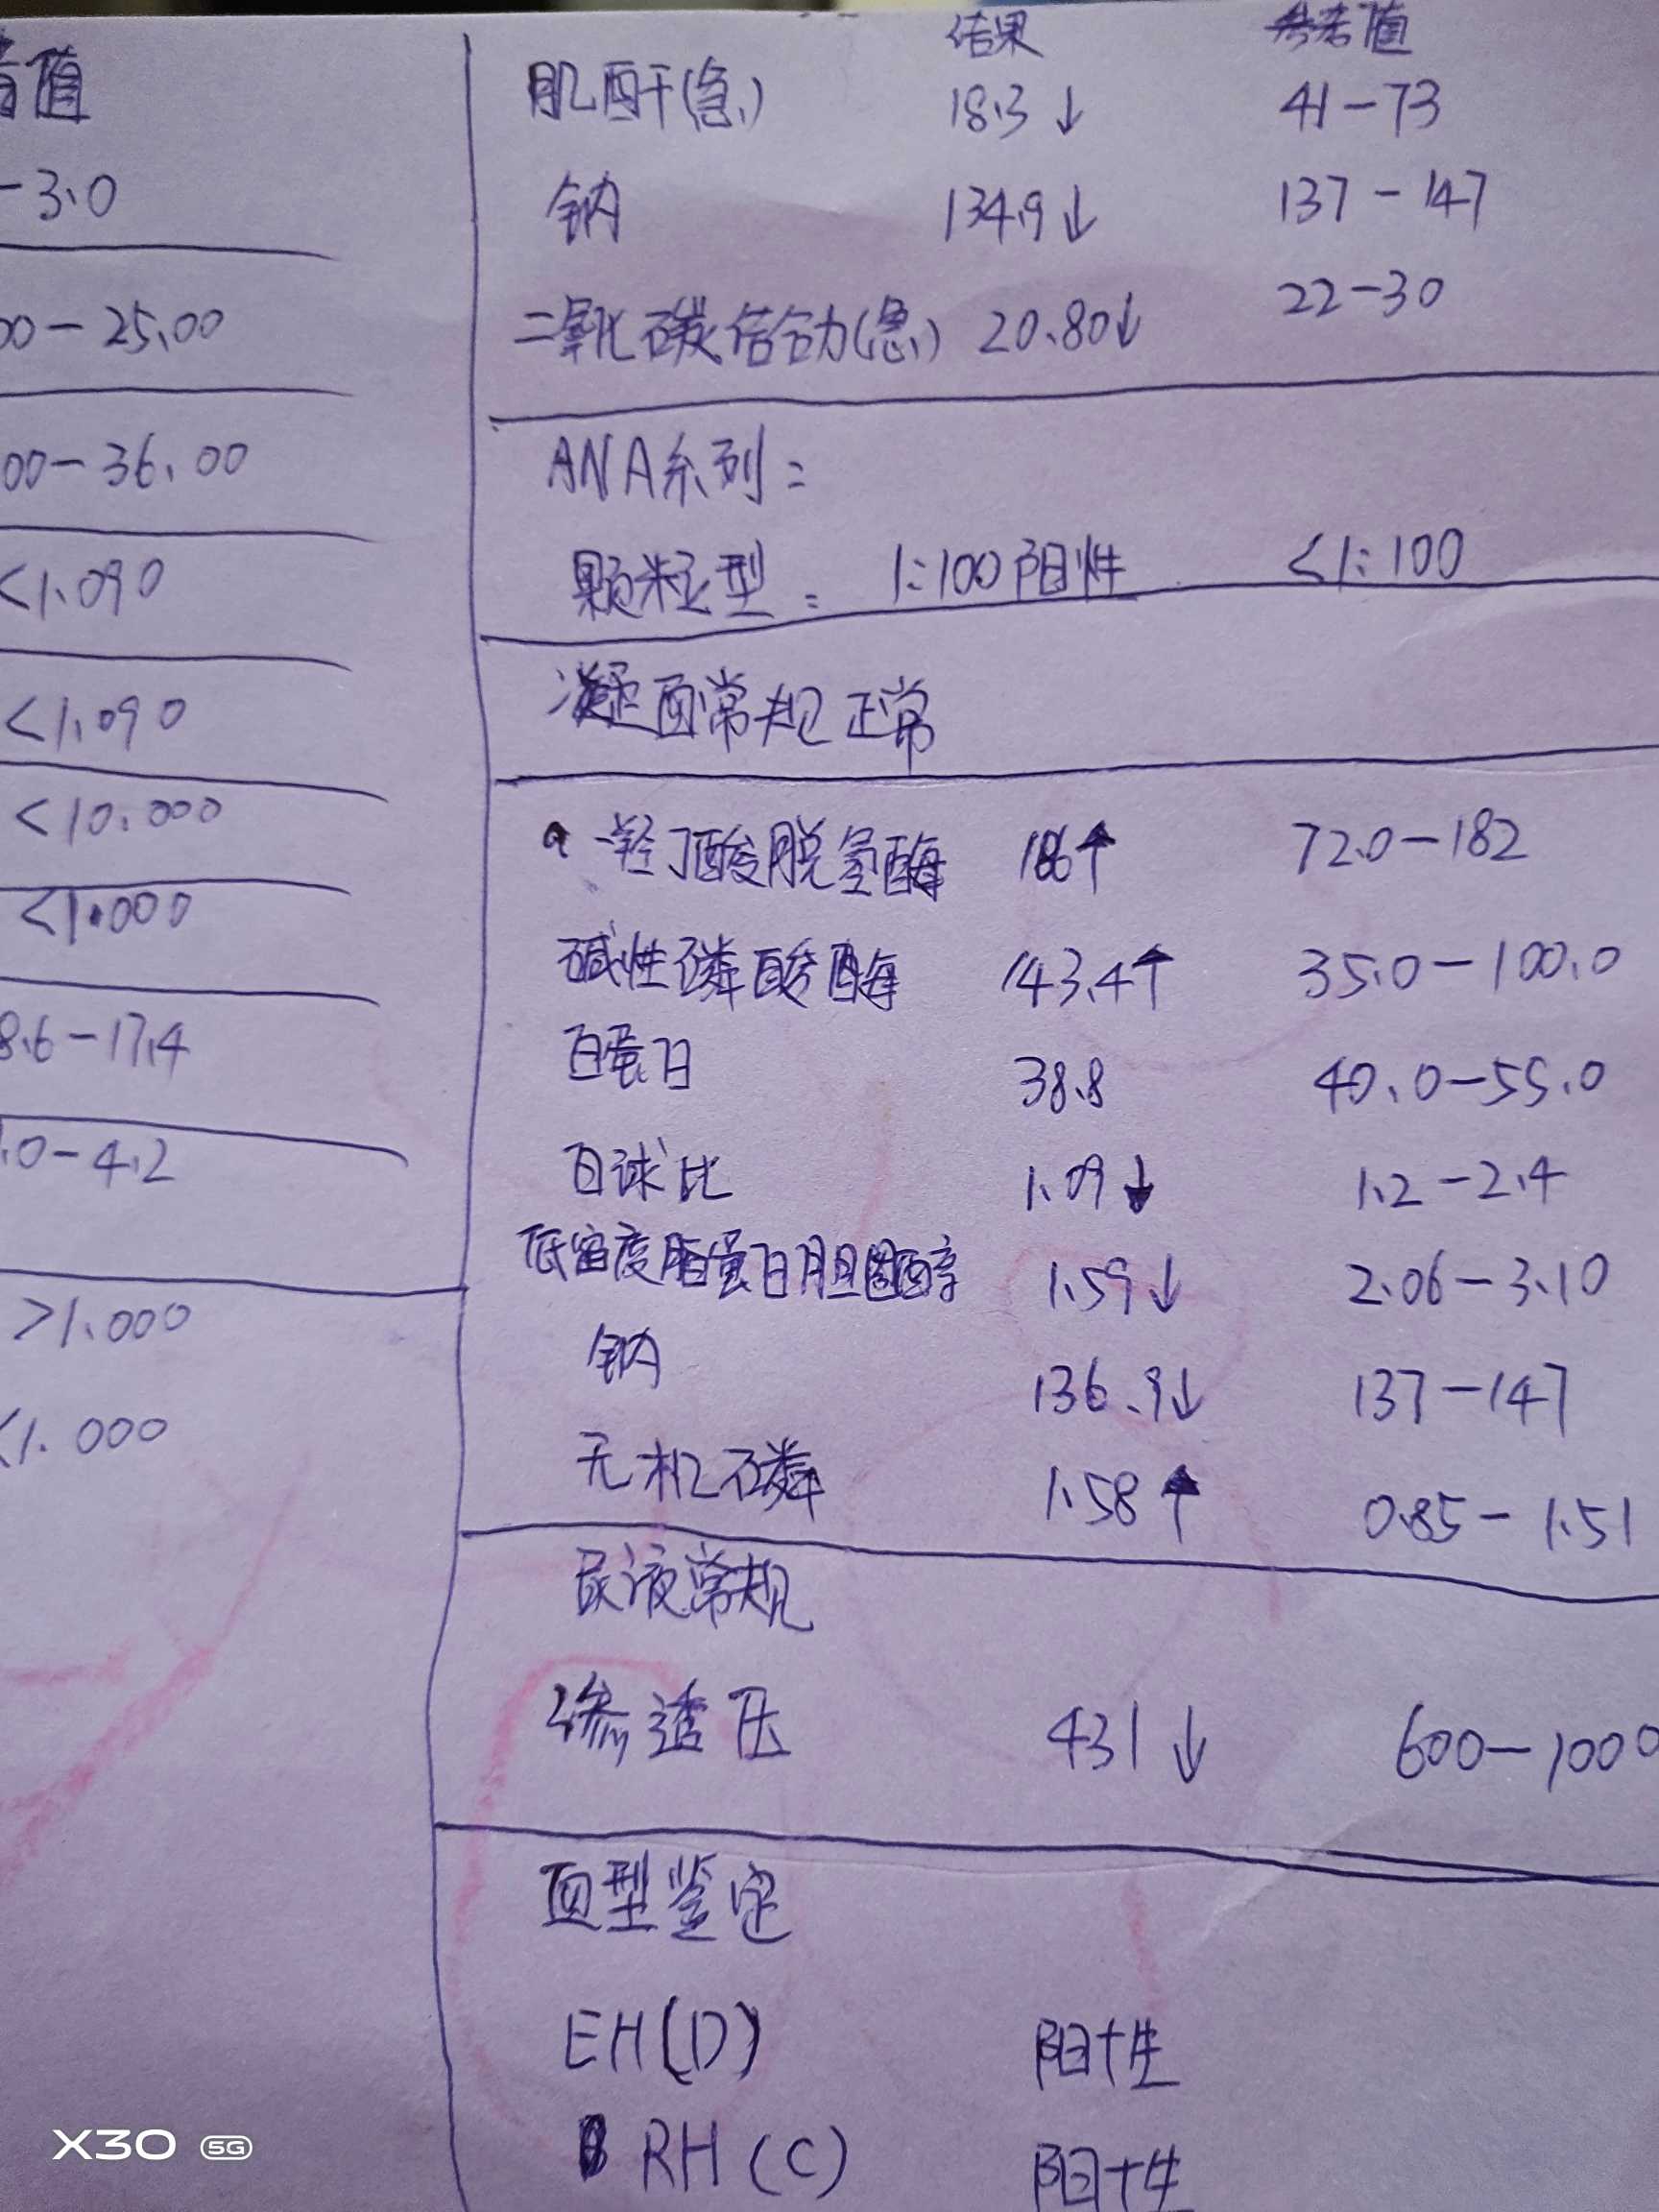 考值
-3.0
00-25.00
00-36.00
<1.090
<1.090
<10.000
<1.000
8.6-17.4
.0-4.2
>1.000
<1.000
结果 参考值
肌酐(急) 18.3↓ 41-73
钠 134.9↓ 137-147
二氧化碳结合力(急) 20.80↓ 22-30
ANA系列:
颗粒型: 1:100阳性 <1:100
凝血常规正常
a-羟丁酸脱氢酶 186↑ 72.0-182
碱性磷酸酶 143.4↑ 35.0-100.0
白蛋白 38.8 40.0-55.0
白球比 1.09↓ 1.2-2.4
低密度脂蛋白胆固醇 1.59↓ 2.06-3.10
钠 136.9↓ 137-147
无机磷 1.58↑ 0.85-1.51
尿液常规
渗透压 431↓ 600-1000
血型鉴定
EH(D) 阳性
RH(C) 阳性
X30 5G